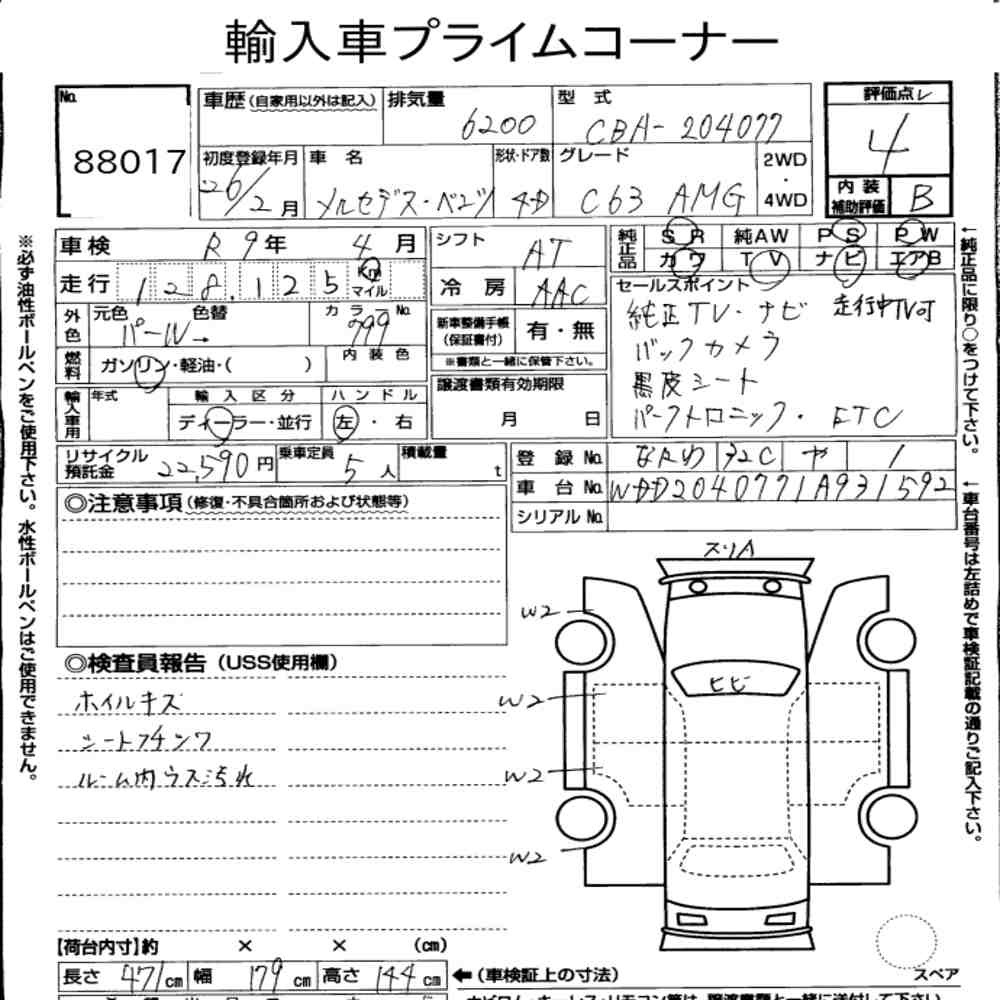 輸入車プライムコーナー
No. 88017
車歴(自家用以外は記入) 排気量 6200 型式 CBA-204077
評価点 4
初度登録年月 26/2月 車名 メルセデス・ベンツ 形状・ドア数 4D グレード C63 AMG 2WD・4WD
内装補助評価 B
車検 R9年 4月
走行 128,125 Km マイル
外色 元色 パール 色替 カラーNo. 799
燃料 ガソリン・軽油・( ) 内装色
輸入車用 年式 輸入区分 ディーラー・並行 ハンドル 左・右
リサイクル預託金 22,590円 乗車定員 5人 積載量 t
シフト AT
冷房 AAC
新車整備手帳(保証書付) 有・無
※書類と一緒に保管下さい。
譲渡書類有効期限
月 日
純正品 SR 純AW PS PW
カワ TV ナビ エアB
セールスポイント
純正TV・ナビ 走行中TV可
バックカメラ
黒皮シート
パークトロニック・ETC
登録No. 32C や 1
車台No. WDD2040771A931592
シリアルNo.
◎注意事項(修復・不具合箇所および状態等)
◎検査員報告(USS使用欄)
ホイルキズ
シートフチンワ
ルーム内ウス汚れ
スリA
W2
ヒビ
W2
W2
W2
スペア
【荷台内寸】約 × × (cm)
長さ 471cm 幅 179cm 高さ 144cm ←(車検証上の寸法)
※必ず油性ボールペンをご使用下さい。水性ボールペンはご使用できません。
←純正品に限り○をつけて下さい。
←車台番号は左詰めで車検証記載の通りご記入下さい。